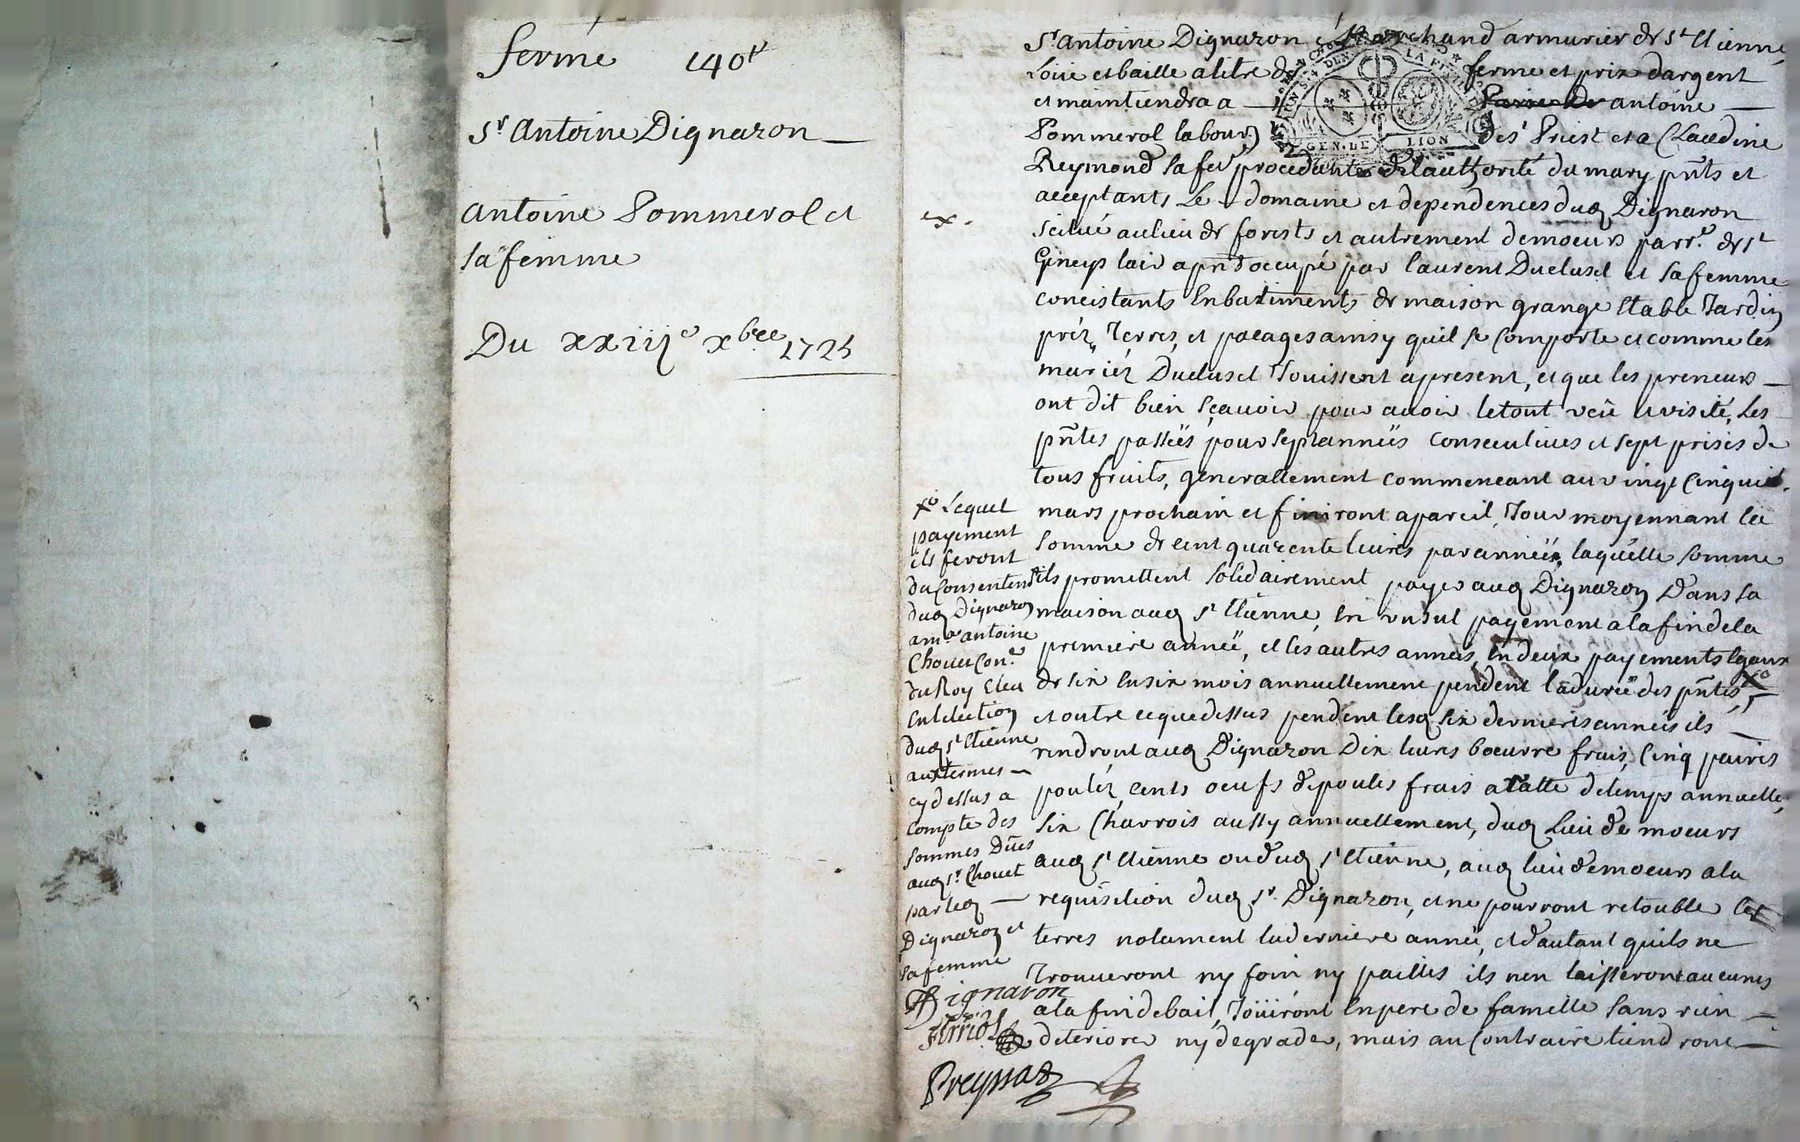 ferme 140ᵗ
Sʳ Antoine Dignaron
Antoine Pommerol et
sa femme
Du xxiijᵉ xbre 1725
Sʳ Antoine Dignaron Marchand armurier de Sᵗ Etienne,
Loüe et baille a titre de ferme et prix dargent
et maintiendra a antoine
Pommerol labourʳ de Sᵗ Priest et a Claudine
Reymond sa feᵉ procedante de lauthorité du mary pn̄ts et
acceptants Le domaine et dependences dud Dignaron
scitué au lieu de forests et autrement demoeurs parrᵉ de Sᵗ
Gineys lair apn̄t occupé par laurent Duclusel et sa femme
concistants En batiments de maison grange Etable Jardin
préz, Terres, et pacages ainsy quil se Comporte et comme les
mariéz Duclusel Jouissent apresent, et que les preneurs
ont dit bien sçauoir pour auoir le tout veü et visité, Les
pn̄tes passëes pour sept annëes consecutiues et sept prises de
tous fruits, generallement commencant au vingt Cinquie
mars prochain et finiront a pareil Jour moyennant la
somme de cent quarente liures par annëe, laquelle somme
ils promettent solidairement payer aud Dignaron Dans sa
maison aud Sᵗ Etienne, En vn sul payement a la fin de la
premiere année, et les autres années, En deux payements Egaux
de six En six mois annuellement pendent la durée des pn̄tes,
et outre ce que dessus pendent lesd six dernieres années ils
rendront aud Dignaron Dix liures boeurre frais, Cinq paires
pouléz, cents oeufs de poules frais a talle de temps annuelle,
six Charrois aussy annuellement, dud Lieu de moeurs
aud Sᵗ Etienne ou dud Sᵗ Etienne, aud lieu demoeurs a la
requisition dud Sʳ Dignaron, et ne pourront retouble les
terres notament la derniere année, et dautant quils ne
Trouueront ny foin ny pailles ils nen laisseront aucunes
a la fin de bail, Joüiront En pere de famille sans rien
deteriorer ny degrader, mais au Contraire tiendront
Lequel
payement
ils feront
du Consentemᵗ
dud Dignaron
a mᵉ antoine
Chouet Conᵉʳ
du Roy Eleu
En lelection
dud Sᵗ Etienne
aux termes
cy dessus a
compte des
sommes Dües
aud Sʳ Chouet
par led
Dignaron et
sa femme
Dignaron
Preynat
GEN. DE LION